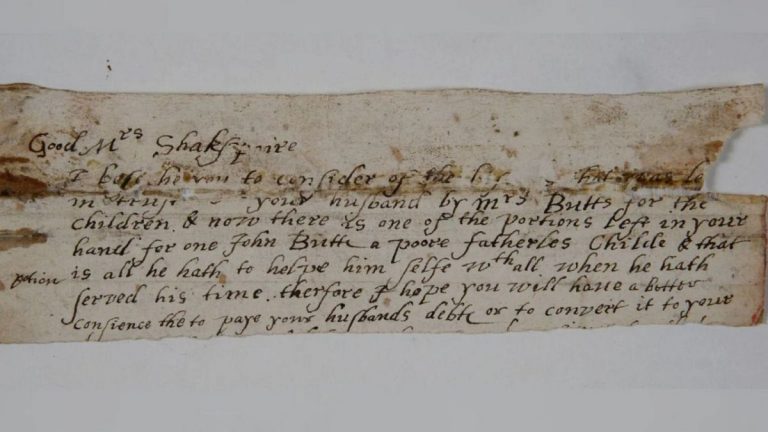 Good Mrs Shakspaire
I besche you to consider of the
in trust your husband by Mrs Butts for the
Children & now there is one of the portions left in your
hand for one John Butte a poore fatherles Childe & that
is all he hath to helpe him selfe wth all when he hath
served his time. therfore I hope you will have a better
Consience the to paye your husbands debte or to convert it to your